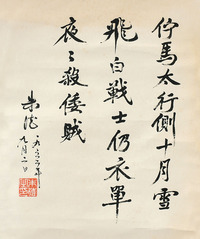 佇馬太行側十月雪
飛白戰士仍衣單
夜〻殺倭賊
朱德
一九六年
九月二日